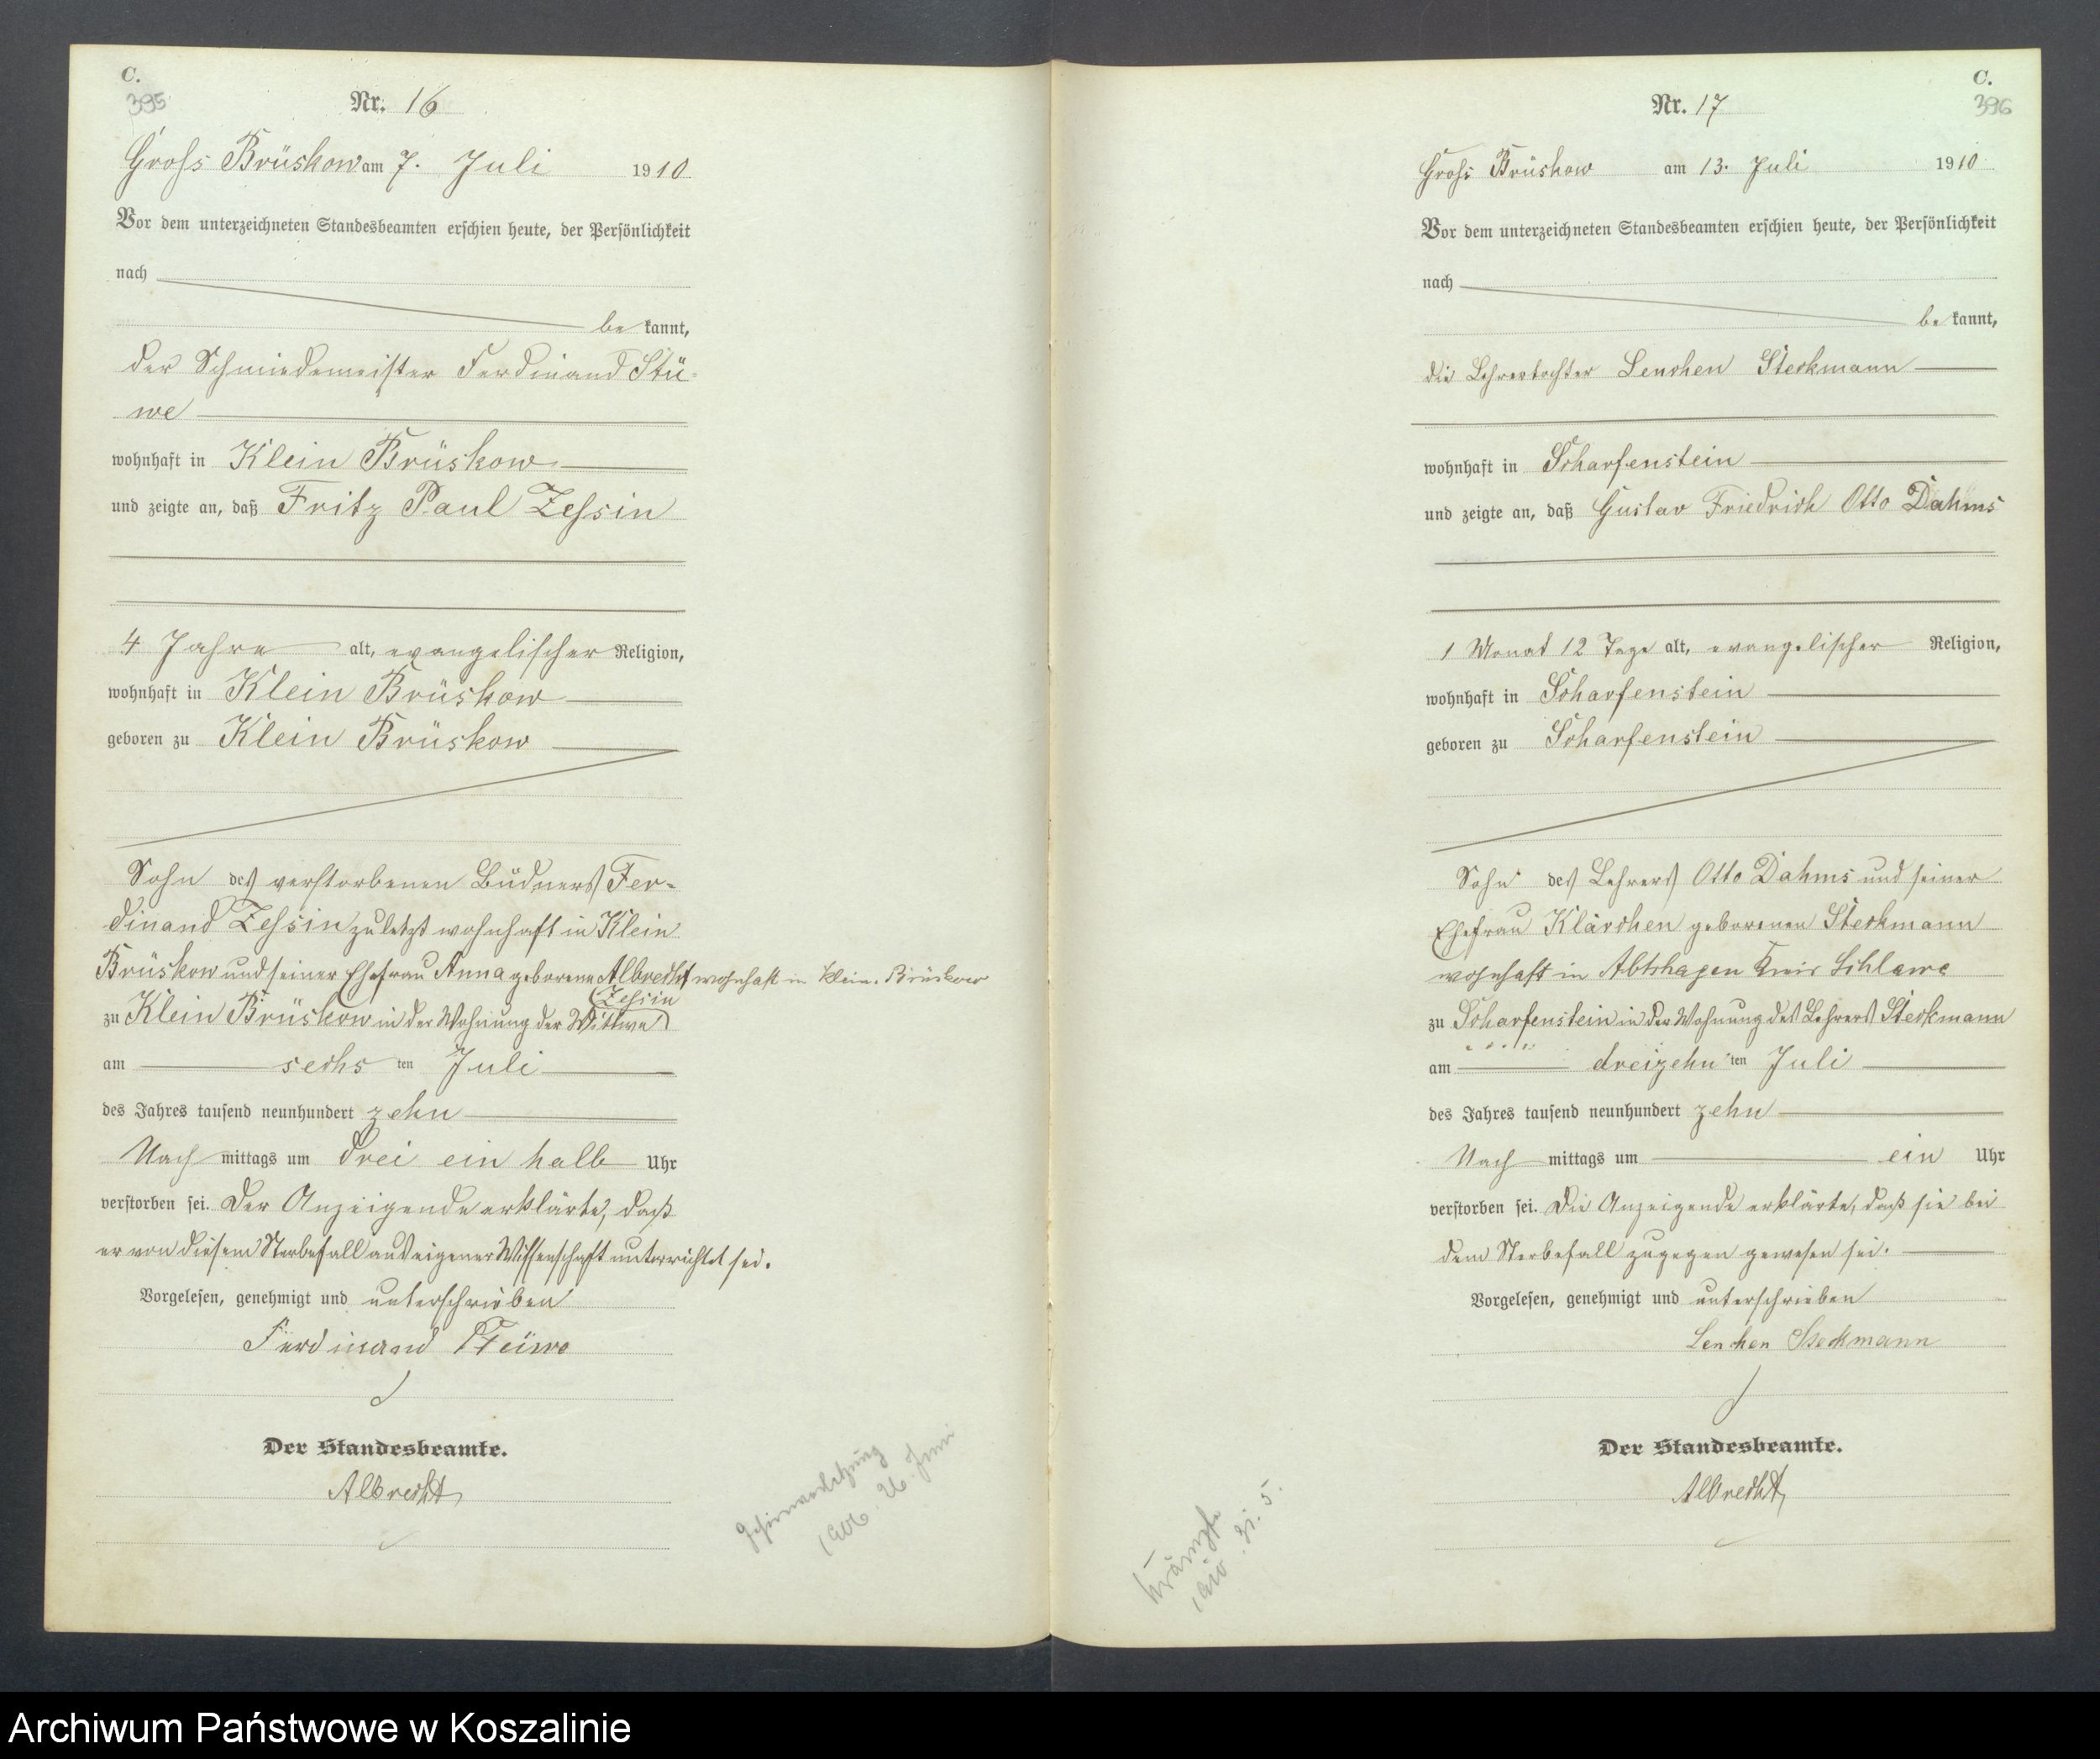 C.
395
Nr. 16
Groß Brüskow am 7. Juli 1910
Vor dem unterzeichneten Standesbeamten erschien heute, der Persönlichkeit
nach
be kannt,
der Schmiedemeister Ferdinand Stü-
we
wohnhaft in Klein Brüskow
und zeigte an, daß Fritz Paul Zessin
4 Jahre alt, evangelischer Religion,
wohnhaft in Klein Brüskow
geboren zu Klein Brüskow
Sohn des verstorbenen Büdners Fer-
dinand Zessin zuletzt wohnhaft in Klein
Brüskow und seiner Ehefrau Anna geborene Albrecht wohnhaft in Klein-Brüskow
Zessin
zu Klein Brüskow in der Wohnung der Wittwe
am sechs ten Juli
des Jahres tausend neunhundert zehn
Nach mittags um drei ein halb Uhr
verstorben sei. Der Anzeigende erklärte, daß
er von diesem Sterbefall aus eigener Wissenschaft unterrichtet sei.
Vorgelesen, genehmigt und unterschrieben
Ferdinand Stüwe
Der Standesbeamte.
Albrecht
1906. 26. Juni
C.
396
Nr. 17
Groß Brüskow am 13. Juli 1910
Vor dem unterzeichneten Standesbeamten erschien heute, der Persönlichkeit
nach
be kannt,
die Lehrertochter Lenchen Steckmann
wohnhaft in Scharfenstein
und zeigte an, daß Gustav Friedrich Otto Dahms
1 Monat 12 Tage alt, evangelischer Religion,
wohnhaft in Scharfenstein
geboren zu Scharfenstein
Sohn des Lehrers Otto Dahms und seiner
Ehefrau Klärchen geborenen Steckmann
wohnhaft in Abtshagen Kreis Schlawe
zu Scharfenstein in der Wohnung des Lehrers Steckmann
am dreizehn ten Juli
des Jahres tausend neunhundert zehn
Nach mittags um ein Uhr
verstorben sei. Die Anzeigende erklärte, daß sie bei
dem Sterbefall zugegen gewesen sei.
Vorgelesen, genehmigt und unterschrieben
Lenchen Steckmann
Der Standesbeamte.
Albrecht
Krämpfe
1910. 31. 5.
Archiwum Państwowe w Koszalinie